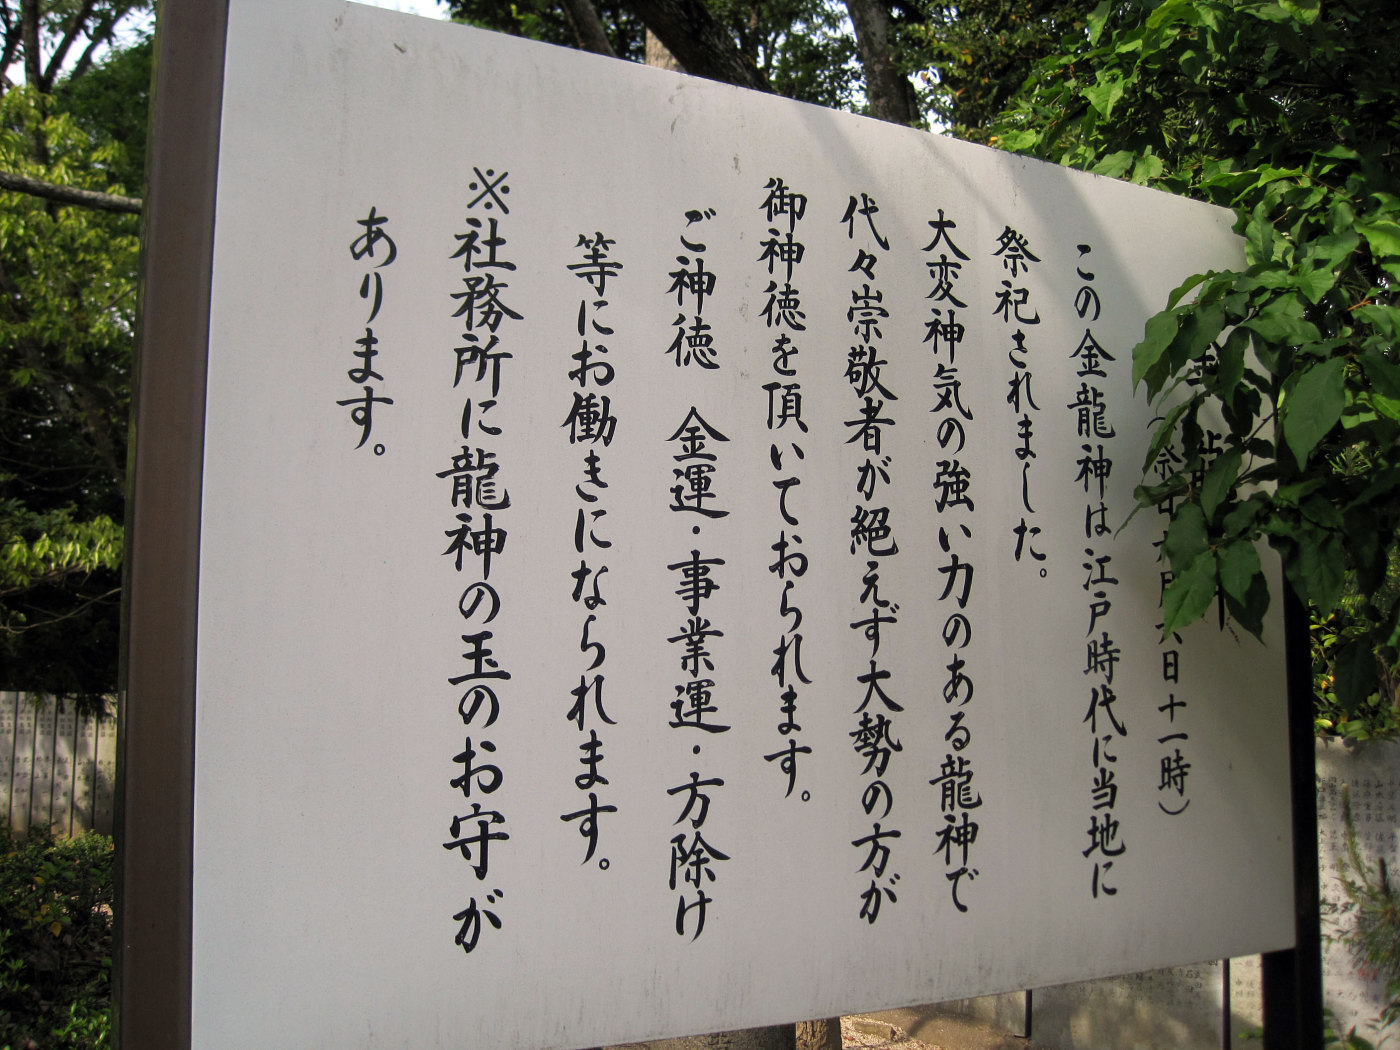 金龍
六月六日十一時）
この金龍神は江戸時代に当地に
祭祀されました。
大変神気の強い力のある龍神で
代々崇敬者が絶えず大勢の方が
御神徳を頂いております。
ご神徳　金運・事業運・方除け
等にお働きになられます。
※社務所に龍神の玉のお守が
あります。